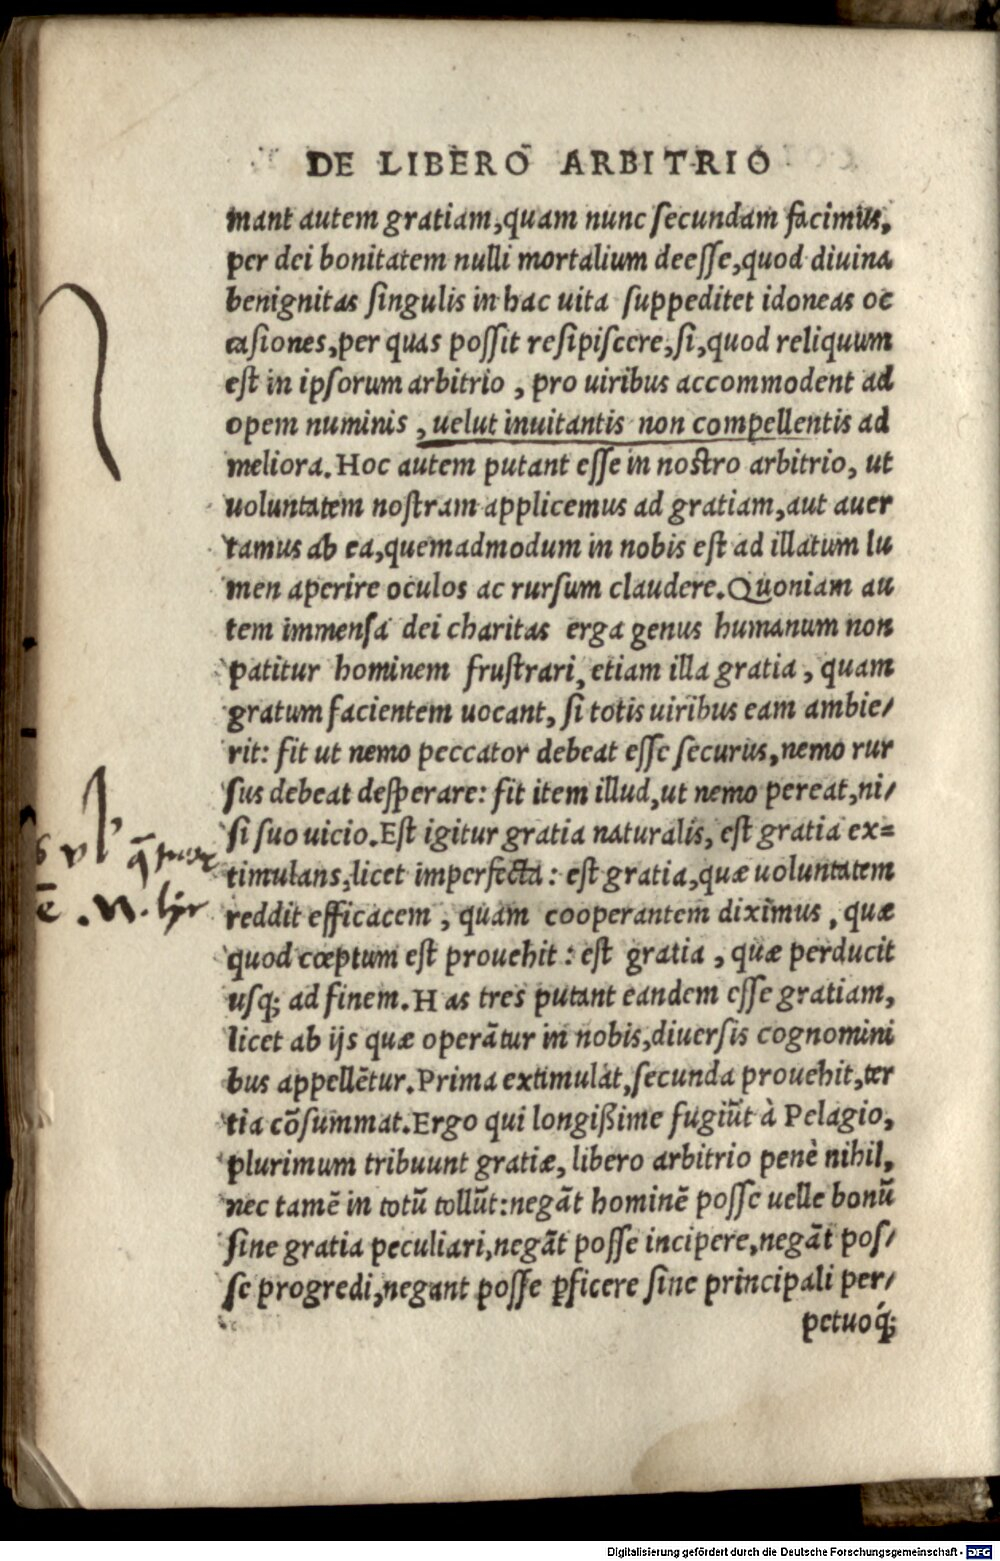 DE LIBERO ARBITRIO
mant autem gratiam, quam nunc secundam facimus,
per dei bonitatem nulli mortalium deesse, quod diuina
benignitas singulis in hac uita suppeditet idoneas oc
casiones, per quas possit resipiscere, si, quod reliquum
est in ipsorum arbitrio, pro uiribus accommodent ad
opem numinis, uelut inuitantis non compellentis ad
meliora. Hoc autem putant esse in nostro arbitrio, ut
uoluntatem nostram applicemus ad gratiam, aut auer
tamus ab ea, quemadmodum in nobis est ad illatum lu
men aperire oculos ac rursum claudere. Quoniam au
tem immensa dei charitas erga genus humanum non
patitur hominem frustrari, etiam illa gratia, quam
gratum facientem uocant, si totis uiribus eam ambie/
rit: fit ut nemo peccator debeat esse securus, nemo rur
sus debeat desperare: fit item illud, ut nemo pereat, ni/
si suo uicio. Est igitur gratia naturalis, est gratia ex=
timulans, licet imperfecta: est gratia, quæ uoluntatem
reddit efficacem, quam cooperantem diximus, quæ
quod cœptum est prouehit: est gratia, quæ perducit
usq; ad finem. Has tres putant eandem esse gratiam,
licet ab ijs quæ operãtur in nobis, diuersis cognomini
bus appellẽtur. Prima extimulat, secunda prouehit, ter
tia cõsummat. Ergo qui longißime fugiũt à Pelagio,
plurimum tribuunt gratiæ, libero arbitrio penè nihil,
nec tamẽ in totũ tollũt: negãt hominẽ posse uelle bonũ
sine gratia peculiari, negãt posse incipere, negãt pos/
se progredi, negant posse ꝑficere sine principali per/
petuoq́;
Digitalisierung gefördert durch die Deutsche Forschungsgemeinschaft - DFG